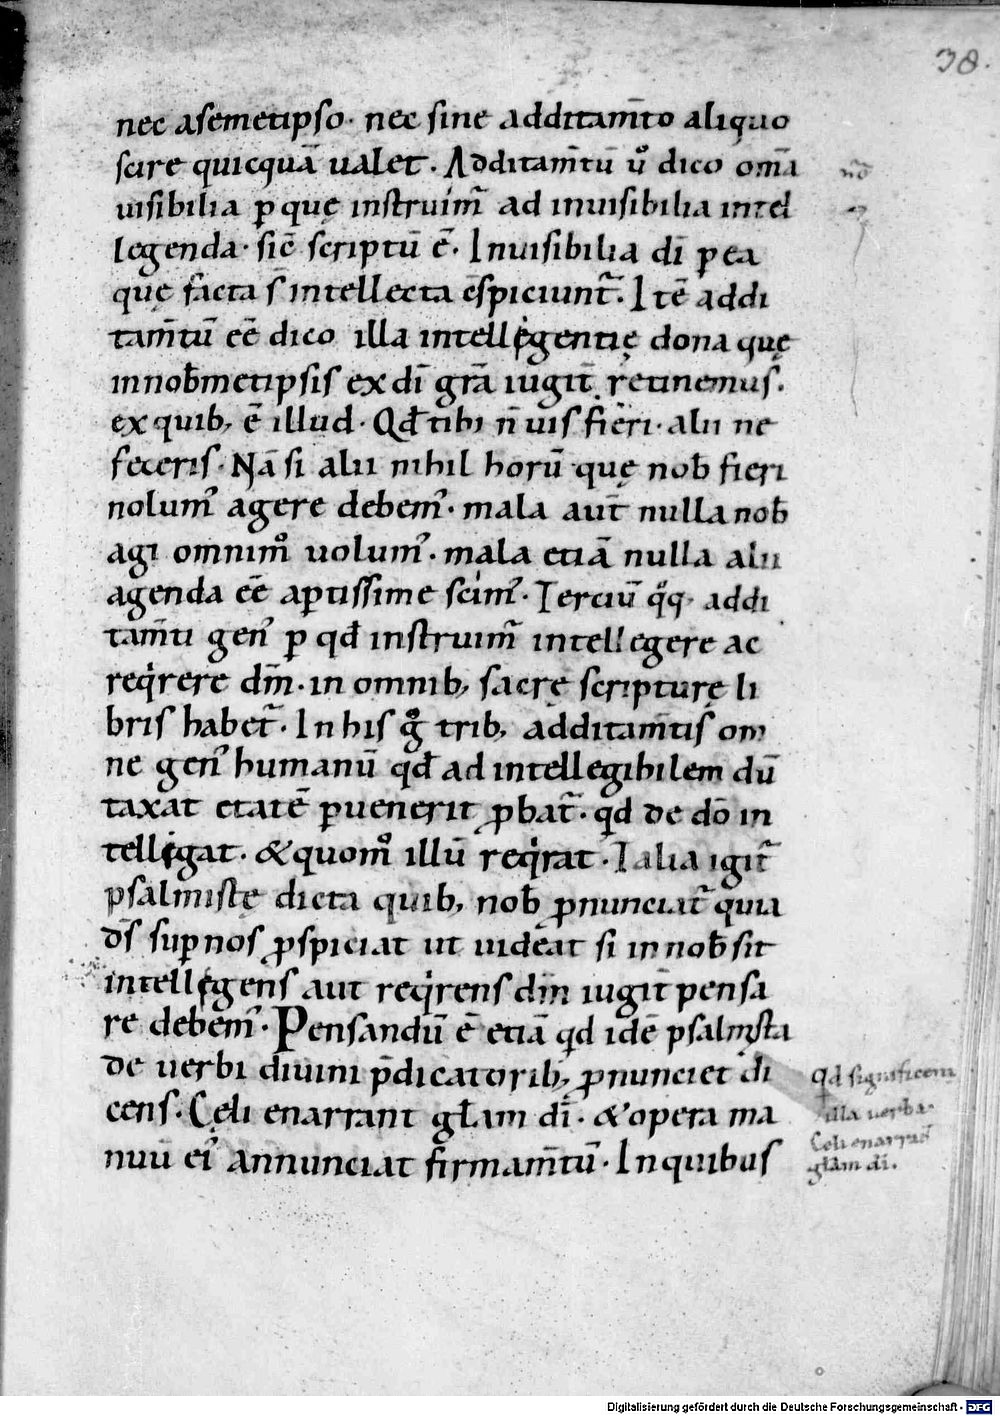 38.
nec asemetipso· nec sine additam̄to aliquo
scire quicquā ualet· Additam̄tū ůo dico om̄a
uisibilia p̱ que̜ instruim᷒ ad inuisibilia intel
legenda· sic̄ scriptū ē· Inuisibilia dī p̱ ea
que̜ facta s̄ intellecta c̄spiciunt᷒· Itē addi
tam̄tū eē dico illa intellegentie̜ dona que̜
in nob̄metipsis ex dī gr̄a iugit̄ retinemus·
ex quib; ē illud· Qd̄ tibi n̄ uis fieri· alii ne
feceris· Nā si alii nihil horū que̜ nob̄ fieri
nolum᷒ agere debem᷒· mala aūt nulla nob̄
agi omnim̊ uolum᷒· mala etiā nulla alii
agenda eē aptissime scim᷒· Terciū q̊q; addi
tam̄ti gen᷒ p̱ qd̄ instruim᷒ intellegere ac
reqͥrere dn̄m· in omnib; sacre̜ scripture̜ li
bris habet᷒· In his g̊ trib; additam̄tis om
ne gen᷒ humanū qd̄ ad intellegibilem dū
taxat etatē p̱uenerit ꝓbat᷒· qd̄ de dō in
tellegat· & quom̊ illū reqͥrat· Talia igit᷒
psalmiste̜ dicta quib; nob̄ ꝓnunciat᷒ quia
ds̄ sup̱ nos ꝓspiciat ut uideat si in nob̄ sit
intellegens aut reqͥrens dn̄m iugit̄ pensa
re debem᷒· Pensandū ē etiā qd̄ idē psalmista
de uerbi diuini p̄dicatorib; ꝓnunciet di
cens· Ce̜li enarrant gl̄am dī· & opera ma
nuū ei᷒ annunciat firmam̄tū· In quibus
nō
qd̄ significent
illa uerba·
Celi enarrant
gl̄am dī.
Digitalisierung gefördert durch die Deutsche Forschungsgemeinschaft - DFG